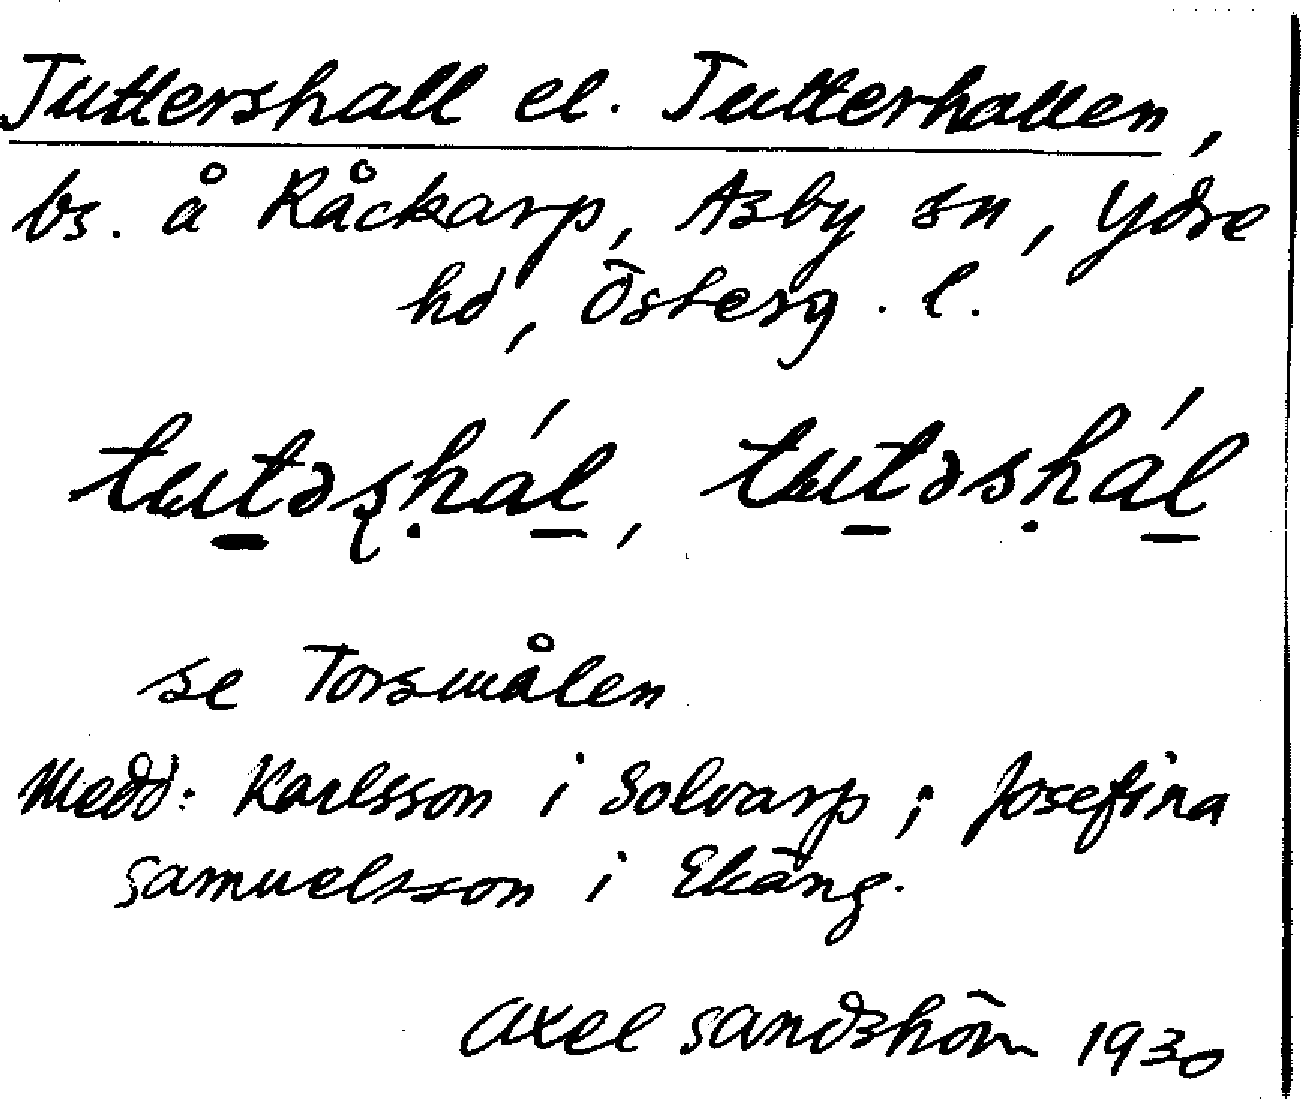 Tuttershall el. Tutterhallen,
bs. å Råckarp, Asby sn, Ydre
hd, Österg. l.
tutəʂhál, tutəshál
se Torsmålen
Medd: Karlsson i Solvarp; Josefina
Samuelsson i Ekäng.
Axel Sandshöm 1930